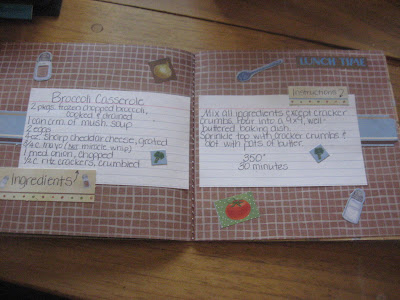 Broccoli Casserole
2 pkgs. frozen chopped broccoli,
cooked & drained
1 can crm. of mush. soup
2 eggs
4oz. sharp cheddar cheese, grated
3/4 c. mayo (not miracle whip)
1 med. onion, chopped
1/2 c. ritz crackers, crumbled
Ingredients
LUNCH TIME
Instructions
Mix all ingredients except cracker
crumbs. Pour into a 9x9, well-
buttered baking dish.
Sprinkle top with cracker crumbs &
dot with pats of butter.
350°
30 minutes